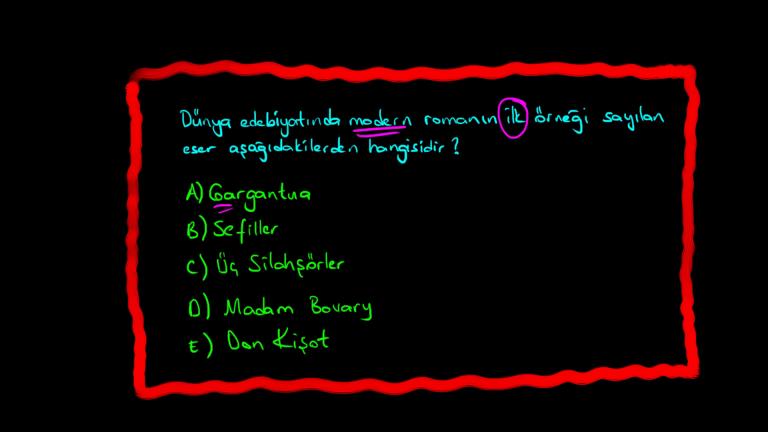 Dünya edebiyatında modern romanın ilk örneği sayılan
eser aşağıdakilerden hangisidir?
A) Gargantua
B) Sefiller
C) Üç Silahşörler
D) Madam Bovary
E) Don Kişot